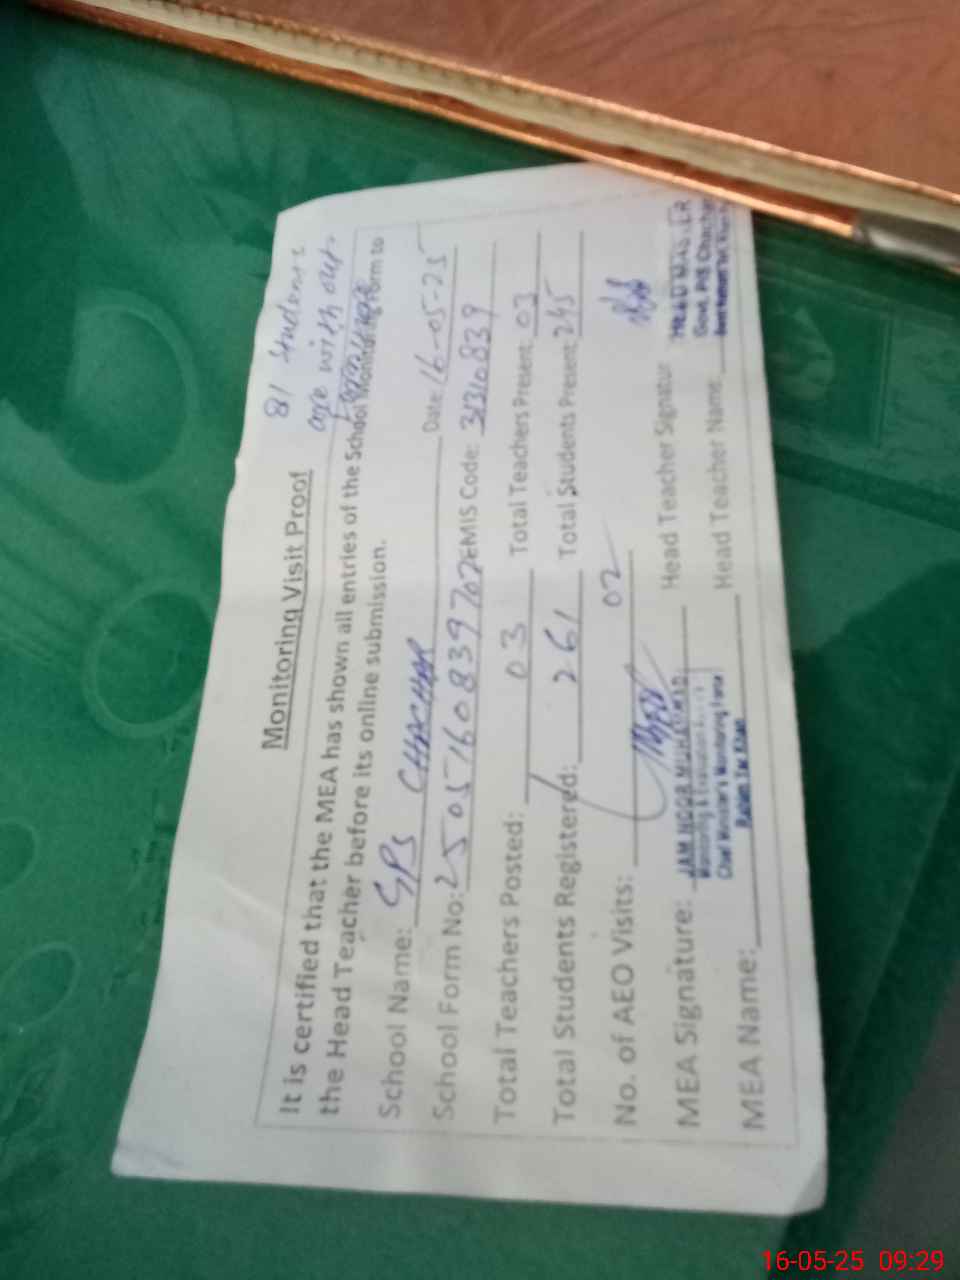 81 students
are with out
furniture
Monitoring Visit Proof
It is certified that the MEA has shown all entries of the School Monitoring Form to
the Head Teacher before its online submission.
School Name: GPS CHACHAR Date: 16-05-25
School Form No: 2505160839702 EMIS Code: 31310839
Total Teachers Posted: 03 Total Teachers Present: 03
Total Students Registered: 261 Total Students Present: 245
No. of AEO Visits: 02
MEA Signature: JAM NOOR MUHAMMAD Head Teacher Signatur HEAD MASTER
Monitoring & Evaluation
Chief Minister's Monitoring Force
Rahim Yar Khan
MEA Name: Head Teacher Name Govt. P/S Chachar
16-05-25 09:29